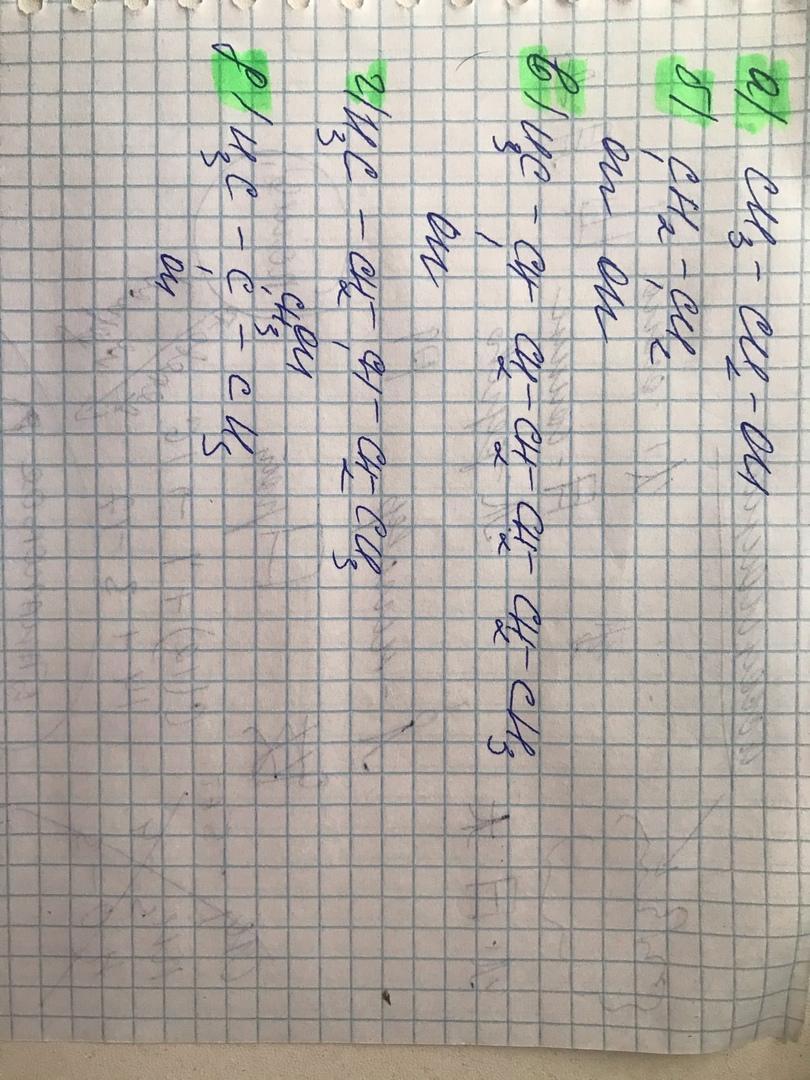 а) CH₃ – CH₂ – OH
б) CH₂ – CH₂
OH OH
в) H₃C – CH CH₂ – CH₂ – CH₂ – CH₂ – CH₃
OH
г) H₃C – CH₂ – CH – CH₂ – CH₃
OH
CH₃
д) H₃C – C – CH₃
OH